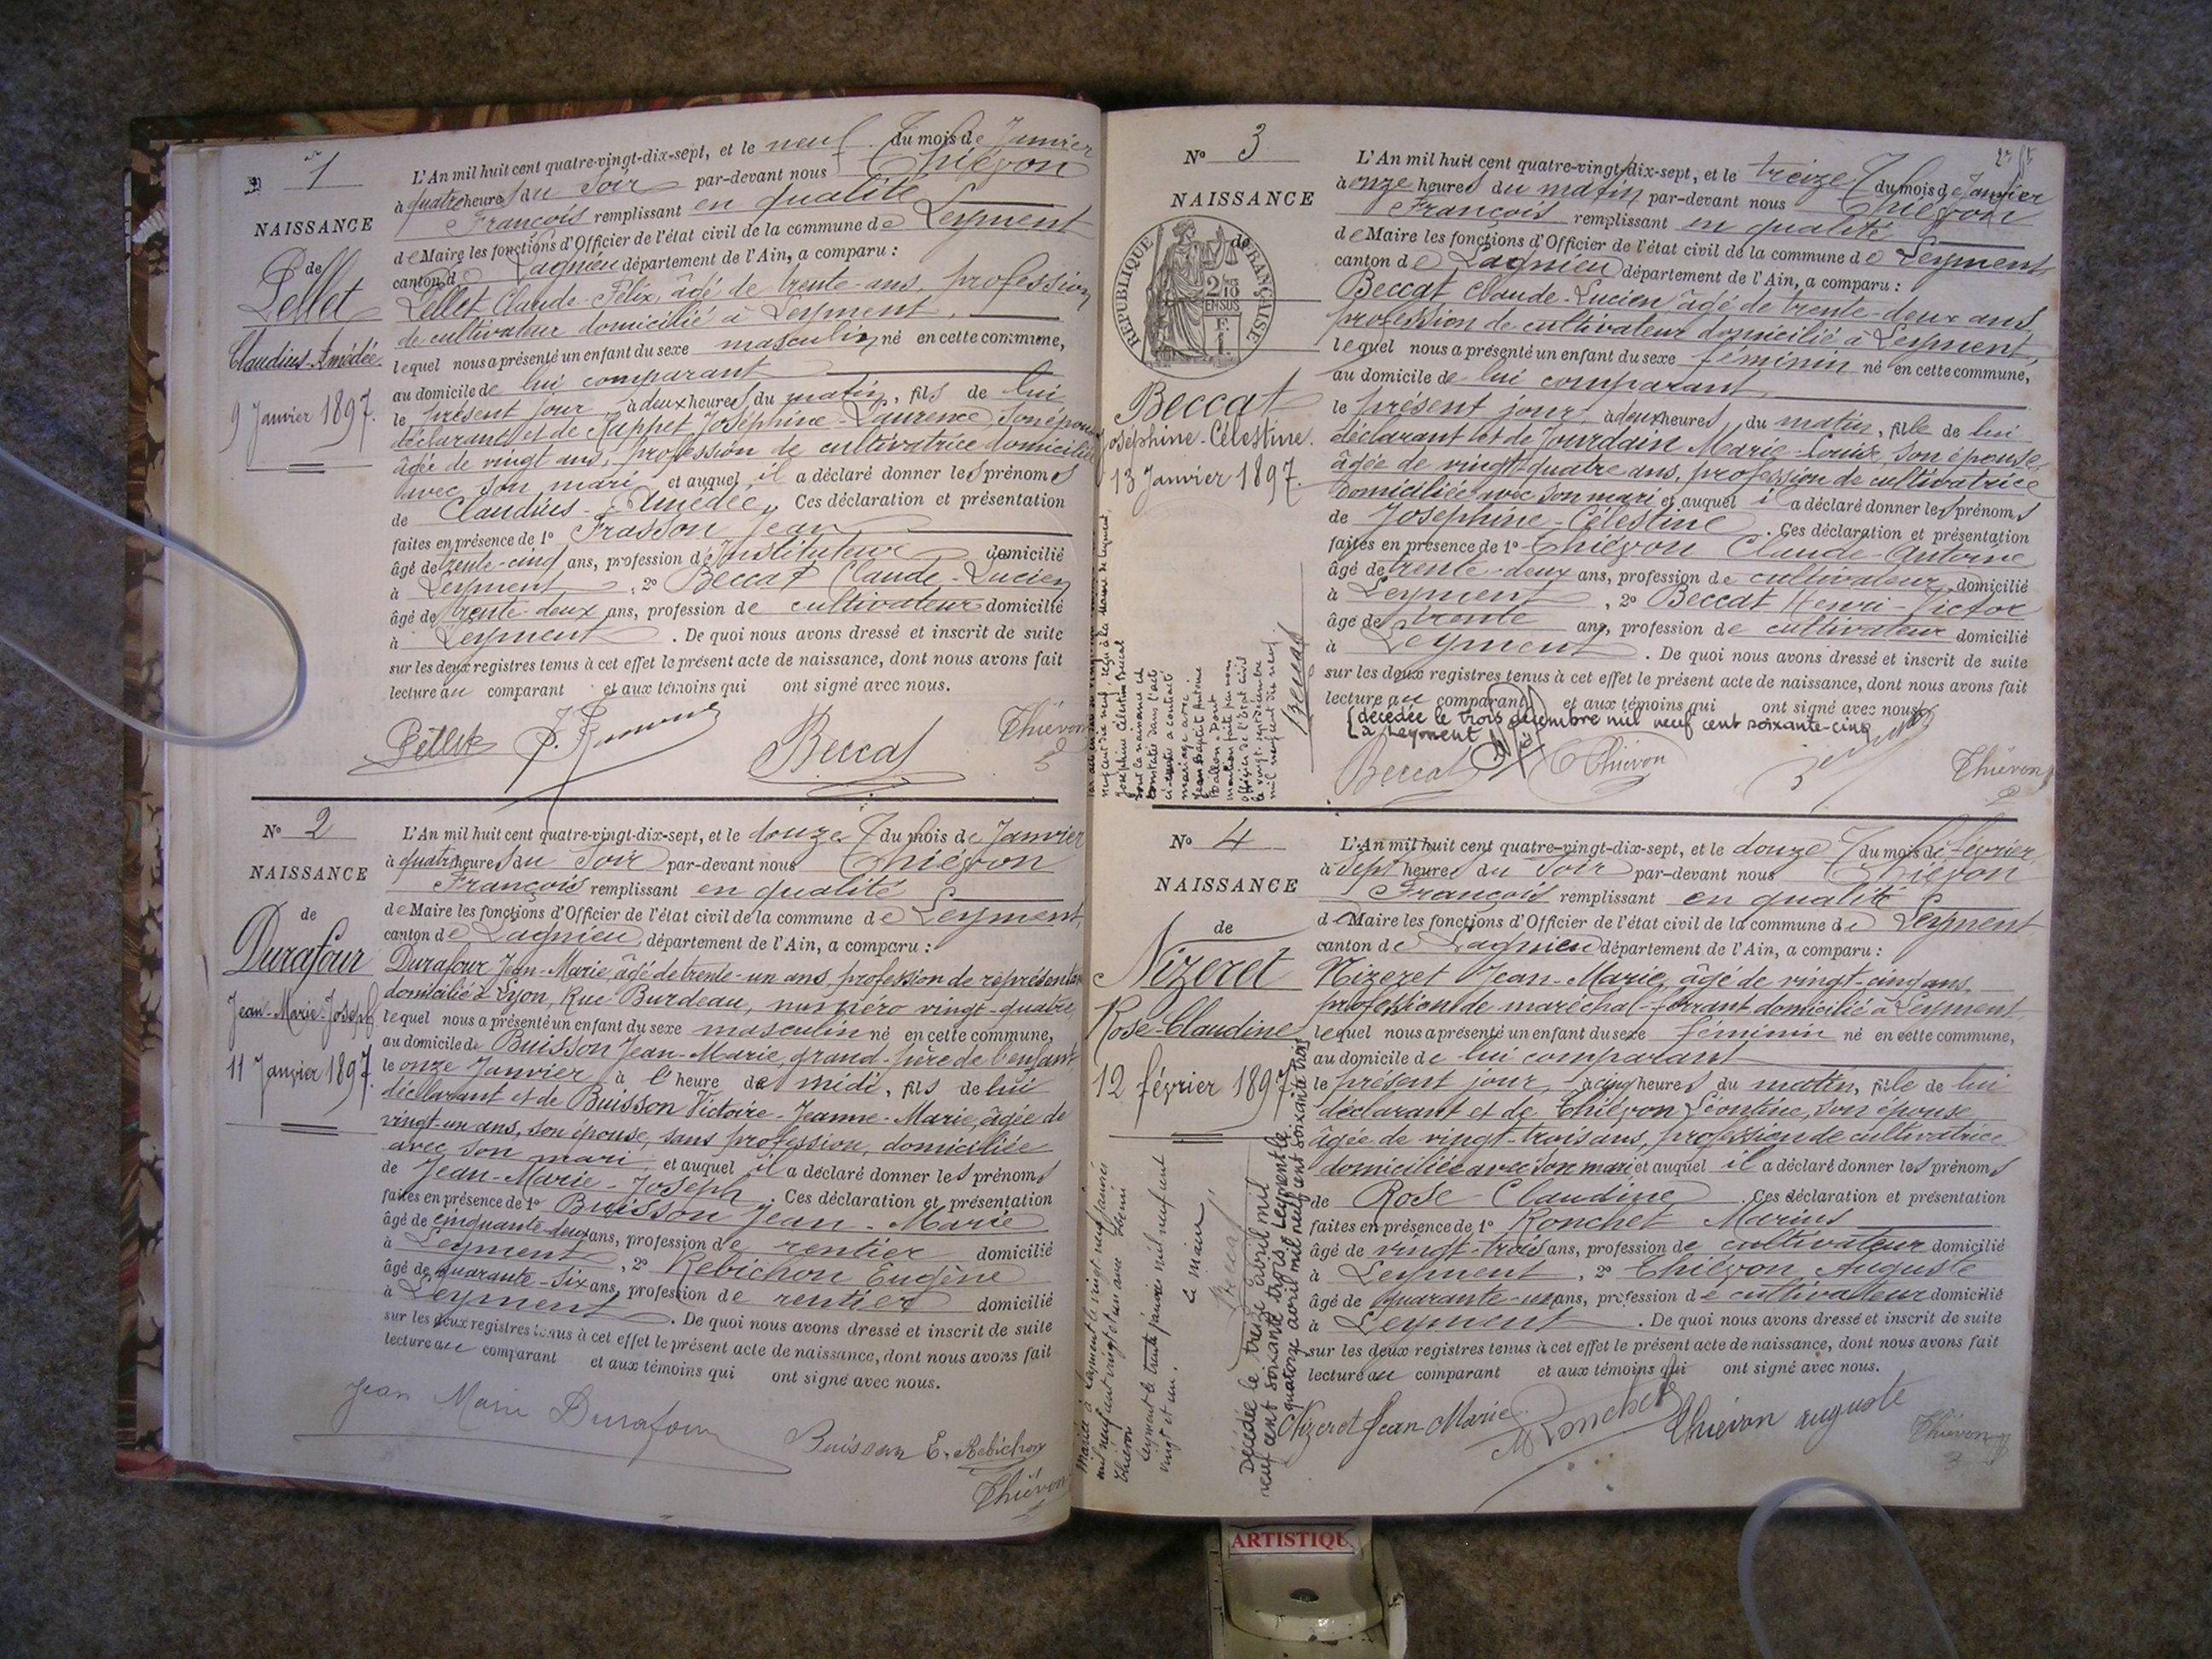 N° 1
NAISSANCE
de
Pellet
Claudius-Amédée
9 Janvier 1897.
L'An mil huit cent quatre-vingt-dix-sept, et le neuf du mois de Janvier
à quatre heures du soir par-devant nous Thiévon
François remplissant en qualité
de Maire les fonctions d'Officier de l'état civil de la commune de Leyment
canton de Lagnieu département de l'Ain, a comparu :
Pellet Claude-Félix, âgé de trente-ans, profession
de cultivateur domicilié à Leyment,
lequel nous a présenté un enfant du sexe masculin né en cette commune,
au domicile de lui comparant
le présent jour à deux heures du matin, fils de lui
déclarant et de Rappet Joséphine-Laurence, son épouse
âgée de vingt ans, profession de cultivatrice domiciliée
avec son mari et auquel il a déclaré donner les prénoms
de Claudius-Amédée, Ces déclaration et présentation
faites en présence de 1° Frasson Jean
âgé de trente-cinq ans, profession d'Instituteur domicilié
à Leyment, 2° Beccat Claude-Lucien
âgé de trente-deux ans, profession de cultivateur domicilié
à Leyment. De quoi nous avons dressé et inscrit de suite
sur les deux registres tenus à cet effet le présent acte de naissance, dont nous avons fait
lecture au comparant et aux témoins qui ont signé avec nous.
Pellet Beccat Thiévon
N° 2
NAISSANCE
de
Durafour
Jean-Marie-Joseph
11 Janvier 1897.
L'An mil huit cent quatre-vingt-dix-sept, et le douze du mois de Janvier
à quatre heures du soir par-devant nous Thiévon
François remplissant en qualité
de Maire les fonctions d'Officier de l'état civil de la commune de Leyment,
canton de Lagnieu, département de l'Ain, a comparu :
Durafour Jean-Marie, âgé de trente-un ans, profession de représentant
domicilié à Lyon, Rue Burdeau, numéro vingt-quatre,
lequel nous a présenté un enfant du sexe masculin né en cette commune,
au domicile de Buisson Jean-Marie, grand-père de l'enfant
le onze Janvier à l'heure de midi, fils de lui
déclarant et de Buisson Victoire-Jeanne-Marie, âgée de
vingt-un ans, son épouse, sans profession, domiciliée
avec son mari et auquel il a déclaré donner les prénoms
de Jean-Marie-Joseph. Ces déclaration et présentation
faites en présence de 1° Buisson Jean-Marie
âgé de cinquante-deux ans, profession de rentier domicilié
à Leyment, 2° Rebichon Eugène
âgé de quarante-six ans, profession de rentier domicilié
à Leyment. De quoi nous avons dressé et inscrit de suite
sur les deux registres tenus à cet effet le présent acte de naissance, dont nous avons fait
lecture au comparant et aux témoins qui ont signé avec nous.
Jean Marie Durafour Buisson E. Rebichon
Thiévon
N° 3
NAISSANCE
de
REPUBLIQUE FRANÇAISE
2/10 EN SUS
Beccat
Joséphine-Célestine.
13 Janvier 1897.
Joséphine Célestine Beccat
dont la naissance est
constatée dans l'acte
ci-contre a contracté
mariage avec
Jean Baptiste Antoine
Ballon. Dont
mention faite par nous
officier de l'état civil
le vingt-sept décembre
mil neuf cent dix neuf.
Beccat
L'An mil huit cent quatre-vingt-dix-sept, et le treize du mois de Janvier
à onze heures du matin par-devant nous Thiévon
François remplissant en qualité
de Maire les fonctions d'Officier de l'état civil de la commune de Leyment
canton de Lagnieu département de l'Ain, a comparu :
Beccat Claude-Lucien âgé de trente-deux ans,
profession de cultivateur domicilié à Leyment,
lequel nous a présenté un enfant du sexe féminin né en cette commune,
au domicile de lui comparant
le présent jour, à deux heures du matin, fille de lui
déclarant et de Jourdain Marie-Louise, son épouse,
âgée de vingt-quatre ans, profession de cultivatrice
domiciliée avec son mari et auquel il a déclaré donner les prénoms
de Joséphine-Célestine. Ces déclaration et présentation
faites en présence de 1° Thiévon Claude-Antoine
âgé de trente-deux ans, profession de cultivateur domicilié
à Leyment, 2° Beccat Henri-Victor
âgé de trente ans, profession de cultivateur domicilié
à Leyment. De quoi nous avons dressé et inscrit de suite
sur les deux registres tenus à cet effet le présent acte de naissance, dont nous avons fait
lecture au comparant et aux témoins qui ont signé avec nous.
décédée le trois décembre mil neuf cent soixante-cinq
à Leyment
Beccat Thiévon Thiévon
N° 4
NAISSANCE
de
Nizeret
Rose-Claudine
12 février 1897
Mariée à Leyment le vingt neuf janvier
mil neuf cent vingt et un avec
Thiévon
Leyment le trente janvier mil neuf cent
vingt et un.
Le maire,
Beccat
Décédée le treize avril mil
neuf cent soixante trois Leyment le
quatorze avril mil neuf cent soixante trois
L'An mil huit cent quatre-vingt-dix-sept, et le douze du mois de février
à sept heures du soir par-devant nous Thiévon
François remplissant en qualité
de Maire les fonctions d'Officier de l'état civil de la commune de Leyment
canton de Lagnieu département de l'Ain, a comparu :
Nizeret Jean-Marie, âgé de vingt-cinq ans,
profession de maréchal-ferrant domicilié à Leyment,
lequel nous a présenté un enfant du sexe féminin né en cette commune,
au domicile de lui comparant
le présent jour, à cinq heures du matin, fille de lui
déclarant et de Thiévon Léontine, son épouse,
âgée de vingt-trois ans, profession de cultivatrice
domiciliée avec son mari et auquel il a déclaré donner les prénoms
de Rose-Claudine. Ces déclaration et présentation
faites en présence de 1° Ronchet Marius
âgé de vingt-trois ans, profession de cultivateur domicilié
à Leyment, 2° Thiévon Auguste
âgé de quarante-un ans, profession de cultivateur domicilié
à Leyment. De quoi nous avons dressé et inscrit de suite
sur les deux registres tenus à cet effet le présent acte de naissance, dont nous avons fait
lecture au comparant et aux témoins qui ont signé avec nous.
Nizeret Jean-Marie M Ronchet Thiévon auguste Thiévon
ARTISTIQU